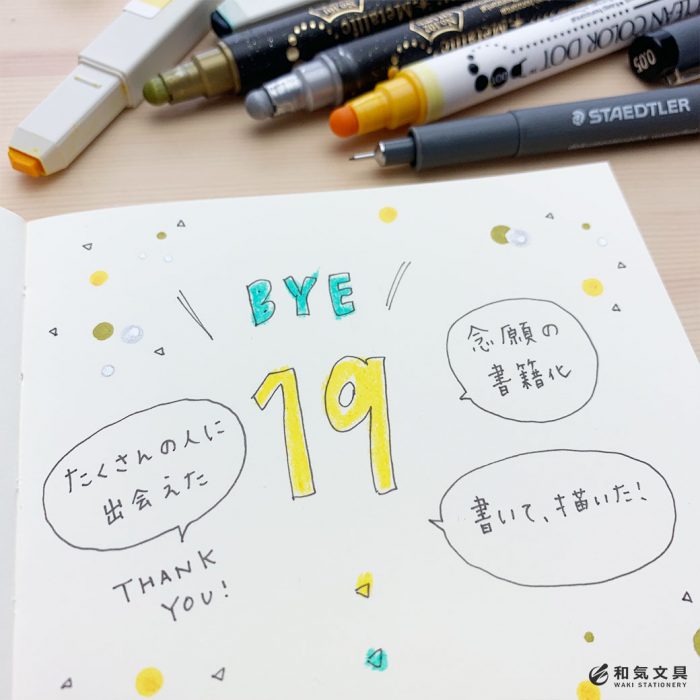 Metallic
CLEAN COLOR DOT
0.05
STAEDTLER
BYE
19
念願の
書籍化
たくさんの人に
出会えた
書いて、描いた!
THANK
YOU!
和気文具
WAKI STATIONERY